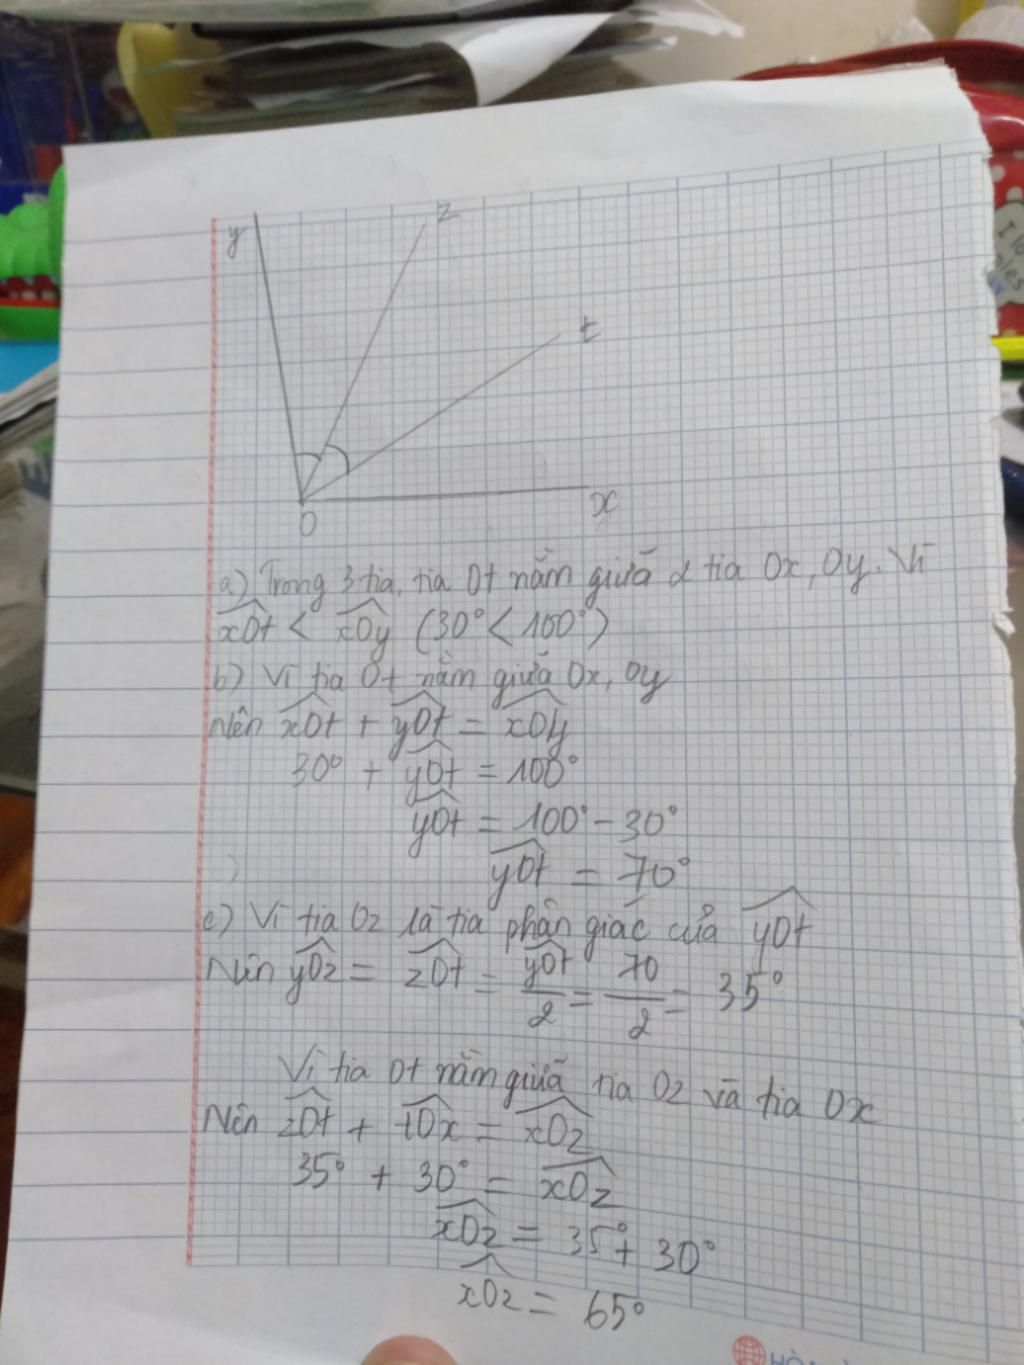 y
z
t
x
O
a) Trong 3 tia, tia Ot nằm giữa 2 tia Ox, Oy. Vì
xOt < xOy (30° < 100°)
b) Vì tia Ot nằm giữa Ox, Oy
Nên xOt + yOt = xOy
30° + yOt = 100°
yOt = 100° - 30°
yOt = 70°
c) Vì tia Oz là tia phân giác của yOt
Nên yOz = zOt = yOt/2 = 70/2 = 35°
Vì tia Ot nằm giữa tia Oz và tia Ox
Nên zOt + tOx = xOz
35° + 30° = xOz
xOz = 35° + 30°
xOz = 65°